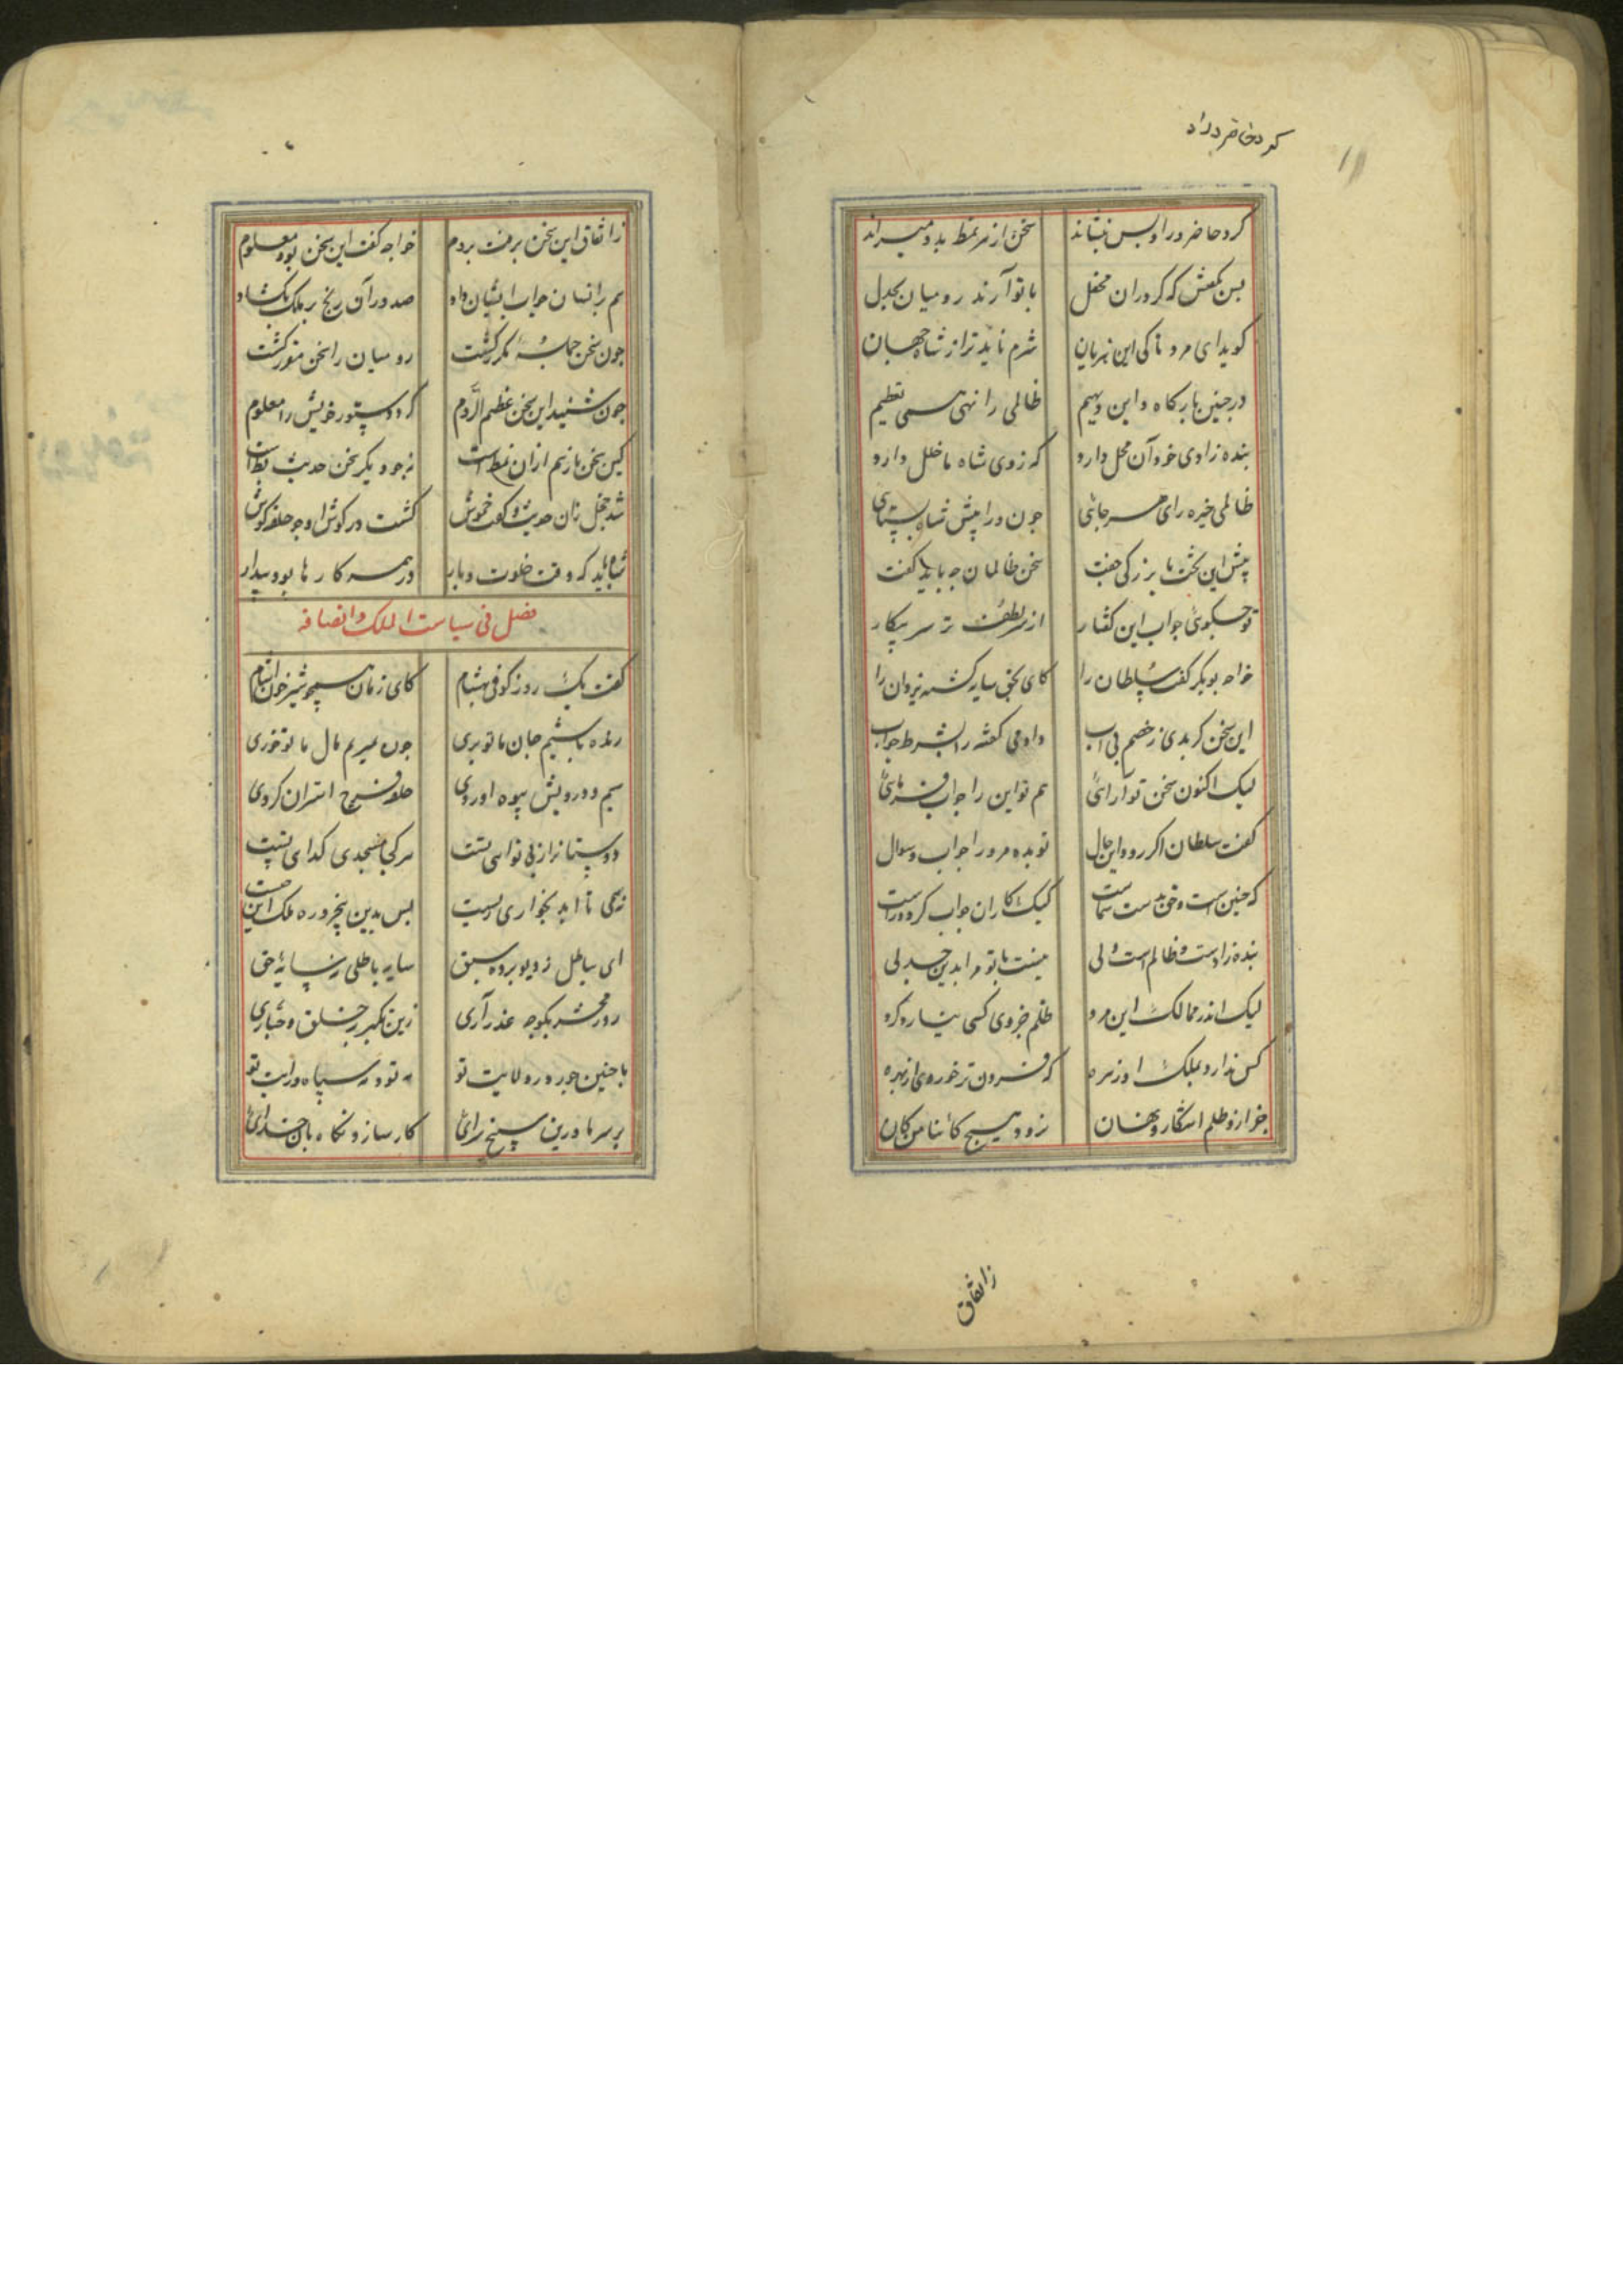 کرد حاضر ورا و پس بنشاند سخن از هر نمط بدو میراند
پس بگفتش که گر در آن محفل با تو آرند رومیان بجدل
کوید ای مرد تا کی این هزیان شرم ناید ترا ز شاه جهان
در چنین بارکاه و این دیهیم ظالمی را نهی همی تعظیم
بنده زادی خود آن محل دارد که ز وی شاه ما خلل دارد
ظالمی خیره رای هر جائی چون ورا پیش شاه بستائی
پیش این تخت با بزرگی جفت سخن ظالمان چه باید گفت
تو چه گوئی جواب این گفتار از سر لطف نز سر پیکار
خواجه بوبکر گفت سلطان را کای بحق سایه گشته یزدان را
این سخن گر بدی ز خصم بی آب دادمی گفته را بشرط جواب
لیک اکنون سخن تو آرائی هم تو این را جواب فرمائی
گفت سلطان اگر رود این حال تو بده مرورا جواب سوال
که چنین است و حق بدست شماست لیک کار آن جواب گردد راست
بنده زادست و ظالم است ولی نیست با تو مرا بدین جدلی
لیک اندر ممالک این مرد ظلم جز وی کسی نیارد کرد
کس ندارد بملک او زهره که فزون تر خورد وی از بهره
جز از و ظلم آشکار و نهان نرود هیچ کائنا من کان
زاتفاق
زاتفاق این سخن برفت بروم خواجه گفت این سخن بود معلوم
هم بر انسان جواب ایشان داد صد در آن رنج بر ملک بکشاد
چون سخن جمله مکرر گشت رومیان را سخن مقرر گشت
چون شنید این سخن عظیم الروم کرد دستور خویش را معلوم
کین سخن باز هم از آن نمط است
شد خجل زان حدیث و گفت خموش گشت در گوش او چو حلقه گوش
شاه باید که وقت خلوت و بار در همه کارها بود بیدار
فصل فی سیاست الملک و انصافه
گفت یک روز کوفی بهشام کای زمان همچو شیر خون آشام
زنده باشیم جان ما تو بری چون بمیریم مال ما تو خوری
سیم درویش بیوه آوردی حلقه فرج استران کردی
ای بباطل ز دیو برده سبق سایه باطلی نه سایه حق
روز محشر بگو چه عذر آری زین تکبر بر خلق و جباری
با چنین جور در ولایت تو نه تو و نه سپاه و رایت تو
بر سر ما درین سپنج سرای کارساز و نگاهبان خدای